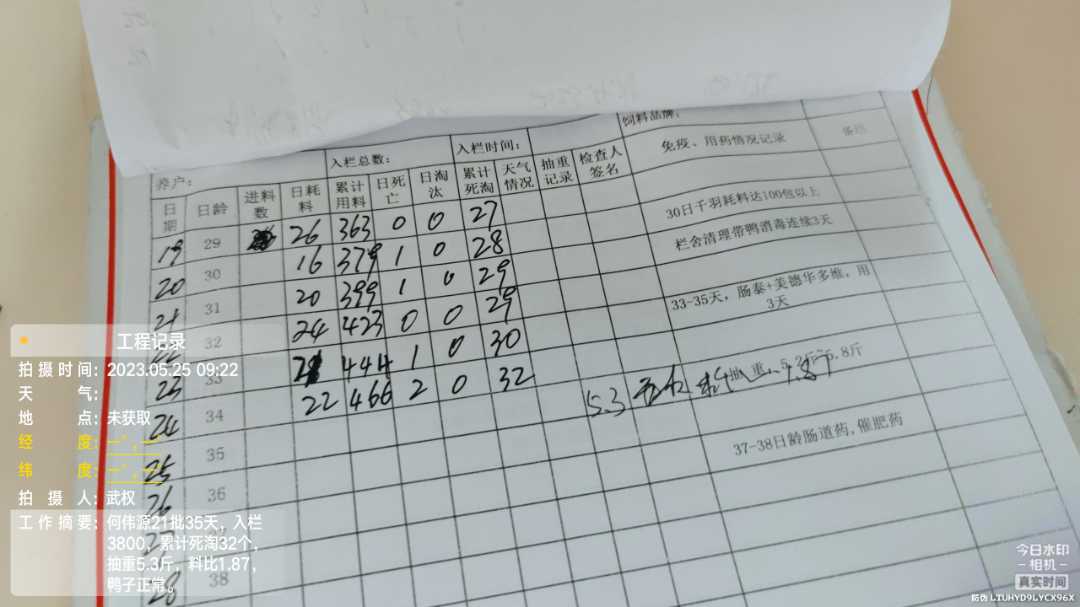 饲料品牌：
入栏总数： 入栏时间： 免疫、用药情况记录 备注
养户：
日期 日龄 进料数 日耗料 累计用料 日死亡 日淘汰 累计死淘 天气情况 抽重记录 检查人签名
19 29 26 363 0 0 27 30日千羽耗料达100包以上
20 30 16 379 1 0 28 栏舍清理带鸭消毒连续3天
21 31 20 399 1 0 29
32 24 423 0 0 29 33-35天，肠泰+美德华多维，用3天
23 33 21 444 1 0 30
24 34 22 466 2 0 32 5.3 抽重，5.2斤~5.8斤
25 35 37-38日龄肠道药,催肥药
26 36
27
28 38
工程记录
拍摄时间：2023.05.25 09:22
天气：
地点：未获取
经度：—°,—
纬度：—°,—
拍摄人：武权
工作摘要：何伟源21批35天，入栏
3800，累计死淘32个，
抽重5.3斤，料比1.87，
鸭子正常。
今日水印
-相机-
真实时间
防伪 LTUHYD9LYCX96X